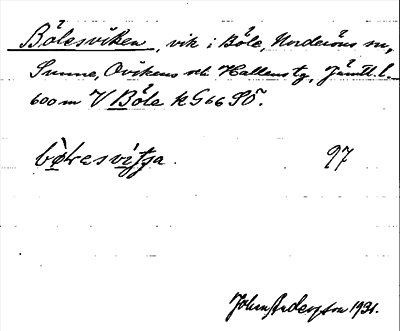 Bölesviken, vik i Böle, Norderöns sn,
Sunne, Ovikens och Hallens tg, Jämtl. l.
600 m V Böle kG66SÖ.
bòl̥esvìt͜ʃa. 97
John Anderson 1931.